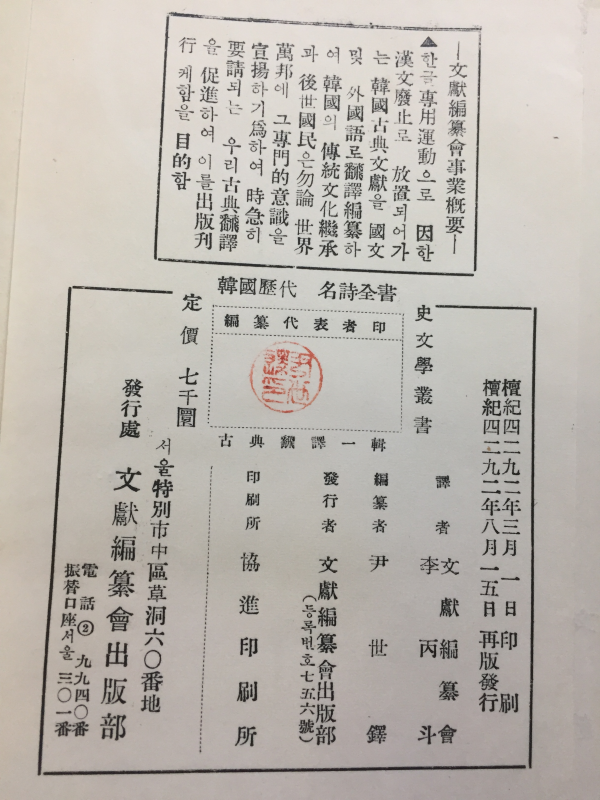 —文獻編纂會事業槪要—
▲한글專用運動으로 因한
漢文廢止로 放置되어가
는 韓國古典文獻을 國文
및 外國語로飜譯編纂하
여 韓國의 傳統文化繼承
과 後世國民은勿論 世界
萬邦에 그專門的意識을
宣揚하기爲하여 時急히
要請되는 우리古典飜譯
을 促進하여 이를出版刊
行 케함을 目的함
韓國歷代 名詩全書
編纂代表者印
古典飜譯一輯
檀紀四二九二年三月 一日 印刷
檀紀四二九二年八月一五日 再版發行
史文學叢書
譯者 文獻編纂會
李丙斗
編纂者 尹世鐸
發行者 文獻編纂會出版部
(등록번호七五六號)
印刷所 協進印刷所
定價 七千圜
서울特別市中區草洞六〇番地
發行處 文獻編纂會出版部
電話② 九九四〇番
振替口座서울 三〇一番